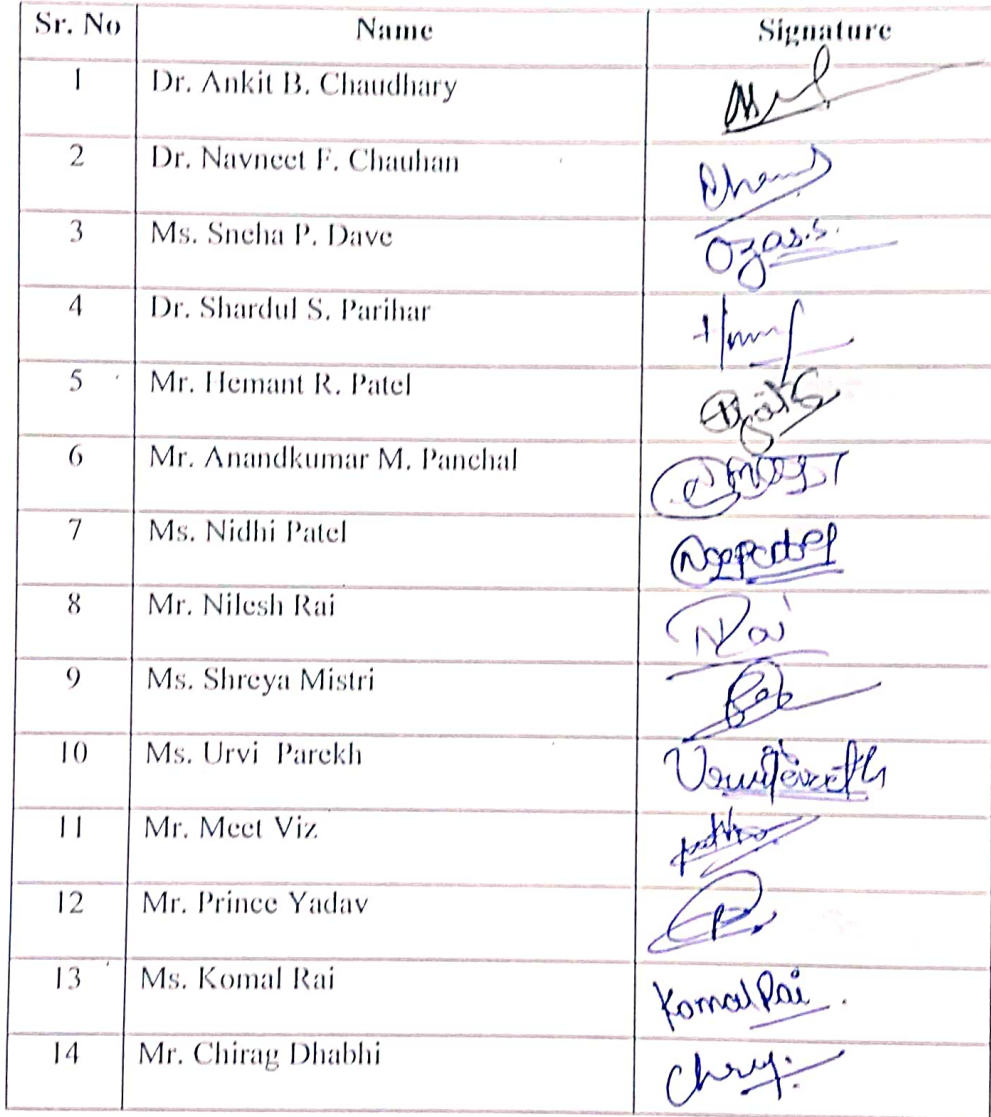 Sr. No Name Signature
1 Dr. Ankit B. Chaudhary
2 Dr. Navneet F. Chauhan
3 Ms. Sneha P. Dave Oza s.s.
4 Dr. Shardul S. Parihar
5 Mr. Hemant R. Patel
6 Mr. Anandkumar M. Panchal
7 Ms. Nidhi Patel
8 Mr. Nilesh Rai Rai
9 Ms. Shreya Mistri
10 Ms. Urvi Parekh
11 Mr. Meet Viz
12 Mr. Prince Yadav
13 Ms. Komal Rai Komal Rai.
14 Mr. Chirag Dhabhi